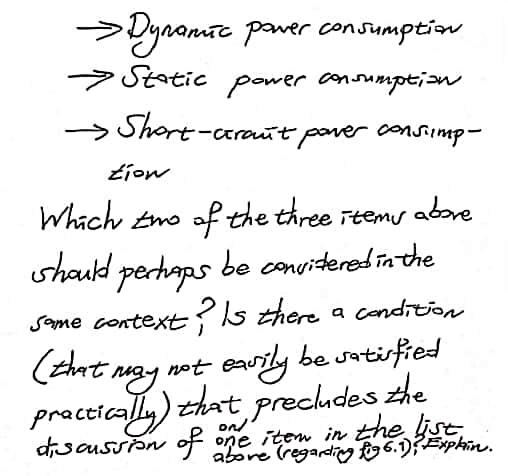 → Dynamic power consumption
→ Static power consumption
→ Short-circuit power consump-
tion
Which two of the three items above
should perhaps be considered in the
same context? Is there a condition
(that may not easily be satisfied
practically) that precludes the
discussion of on one item in the list
above (regarding fig 6.1)? Explain.